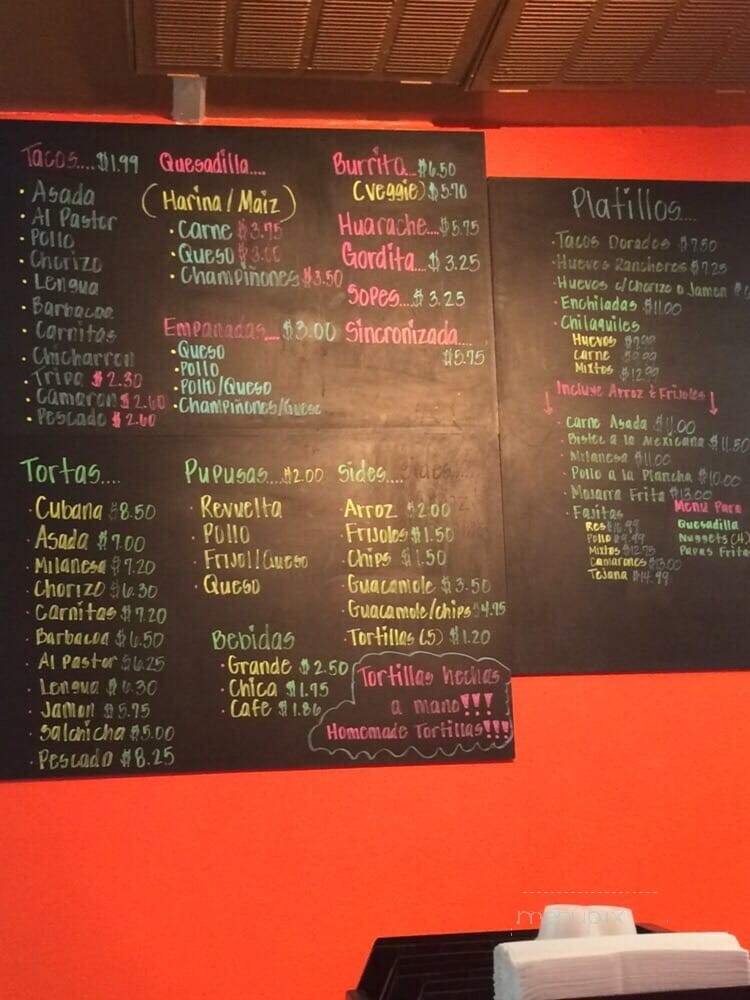 Tacos....$1.99
Asada
Al Pastor
Pollo
Chorizo
Lengua
Barbacoa
Carnitas
Chicharron
Tripa $2.30
Camaron $2.60
Pescado $2.60
Quesadilla....
(Harina/Maiz)
Carne $3.75
Queso $3.00
Champiñones $3.50
Empanadas.... $3.00
Queso
Pollo
Pollo/Queso
Champiñones/Queso
Burrito...$6.50
(veggie) $5.70
Huarache...$5.75
Gordita...$3.25
Sopes...$3.25
Sincronizada....
$5.75
Tortas....
Cubana $8.50
Asada $7.00
Milanesa $7.20
Chorizo $6.30
Carnitas $7.20
Barbacoa $6.50
Al Pastor $6.25
Lengua $6.30
Jamon $5.75
Salchicha $5.00
Pescado $8.25
Pupusas....$2.00
Revuelta
Pollo
Frijol/Queso
Queso
Bebidas
Grande $2.50
Chica $1.75
Cafe $1.86
Sides....
Arroz $2.00
Frijoles $1.50
Chips $1.50
Guacamole $3.50
Guacamole/chips $4.75
Tortillas (5) $1.20
Tortillas hechas
a mano!!!
Homemade Tortillas!!!
Platillos....
Tacos Dorados $7.50
Huevos Rancheros $7.25
Huevos c/Chorizo o Jamon
Enchiladas $11.00
Chilaquiles
Huevos
Carne
Mixtos $12.99
Incluye Arroz & Frijoles
Carne Asada $11.00
Bistec a la Mexicana $11.50
Milanesa $11.00
Pollo a la Plancha $10.00
Mojarra Frita $13.00
Fajitas
Res
Pollo $9.99
Mixtas $12.75
Camarones $13.00
Tejana $14.99
Menu Para
Quesadilla
Nuggets (4)
Papas Fritas
menupix